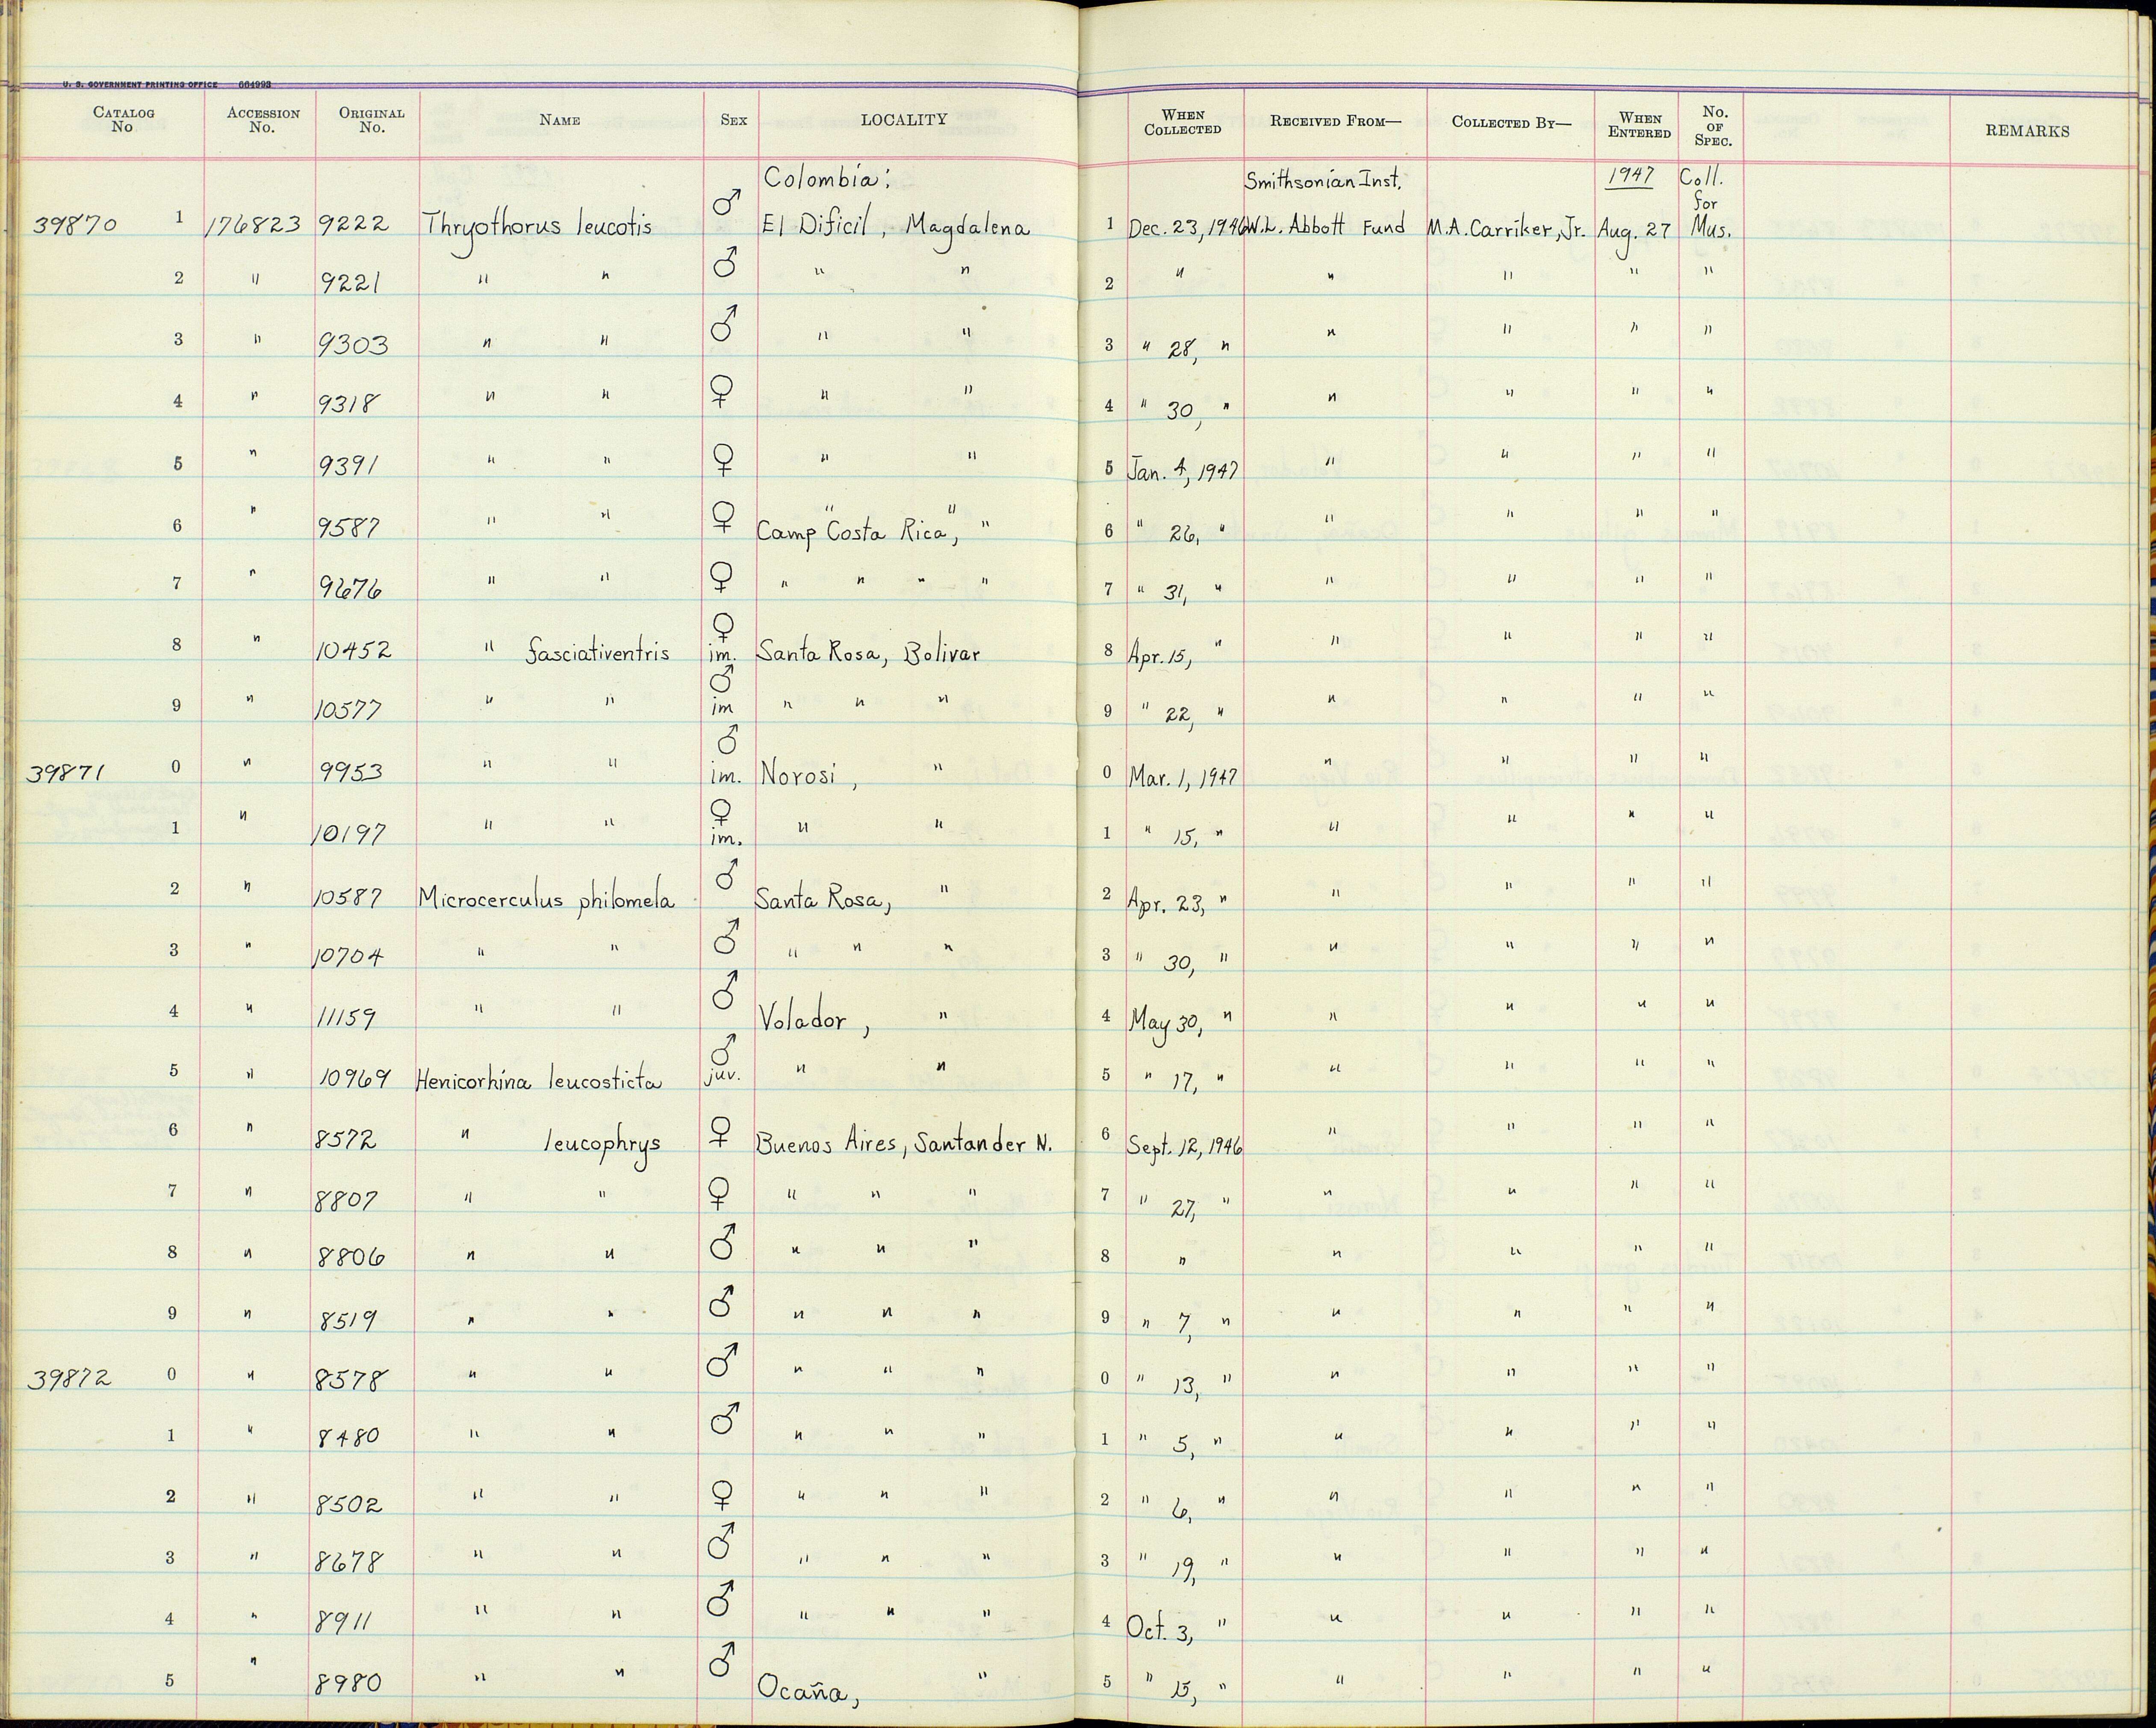 U. S. GOVERNMENT PRINTING OFFICE 664993
CATALOG No ACCESSION No. ORIGINAL No. NAME SEX LOCALITY WHEN COLLECTED RECEIVED FROM— COLLECTED BY— WHEN ENTERED No. OF SPEC. REMARKS
Colombia: Smithsonian Inst. 1947 Coll. for
39870 1 176823 9222 Thryothorus leucotis ♂ El Dificil, Magdalena 1 Dec. 23, 1946 W.L. Abbott Fund M.A. Carriker, Jr. Aug. 27 Mus.
2 " 9221 " " ♂ " " 2 " " " " "
3 " 9303 " " ♂ " " 3 " 28, " " " " "
4 " 9318 " " ♀ " " 4 " 30, " " " " "
5 " 9391 " " ♀ " " 5 Jan. 4, 1947 " " " "
6 " 9587 " " ♀ " " Camp Costa Rica, " 6 " 26, " " " " "
7 " 9676 " " ♀ " " " " 7 " 31, " " " " "
8 " 10452 " fasciativentris ♀ im. Santa Rosa, Bolivar 8 Apr. 15, " " " " "
9 " 10577 " " ♂ im " " " 9 " 22, " " " " "
39871 0 " 9953 " " ♂ im. Norosi, " 0 Mar. 1, 1947 " " " "
1 " 10197 " " ♀ im. " " 1 " 15, " " " " "
2 " 10587 Microcerculus philomela ♂ Santa Rosa, " 2 Apr. 23, " " " " "
3 " 10704 " " ♂ " " " 3 " 30, " " " " "
4 " 11159 " " ♂ Volador, " 4 May 30, " " " " "
5 " 10969 Henicorhina leucosticta ♂ juv. " " 5 " 17, " " " " "
6 " 8572 " leucophrys ♀ Buenos Aires, Santander N. 6 Sept. 12, 1946 " " " "
7 " 8807 " " ♀ " " " 7 " 27, " " " " "
8 " 8806 " " ♂ " " " 8 " " " " "
9 " 8519 " " ♂ " " " 9 " 7, " " " " "
39872 0 " 8578 " " ♂ " " " 0 " 13, " " " " "
1 " 8480 " " ♂ " " " 1 " 5, " " " " "
2 " 8502 " " ♀ " " " 2 " 6, " " " " "
3 " 8678 " " ♂ " " " 3 " 19, " " " " "
4 " 8911 " " ♂ " " " 4 Oct. 3, " " " " "
5 " 8980 " " ♂ Ocaña, " 5 " 15, " " " " "